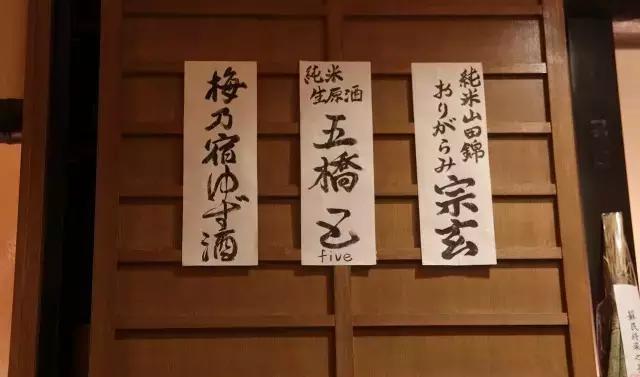 純米山田錦
おりがらみ
宗玄
純米
生原酒
五橋
five
梅乃宿ゆず酒
蘇民将来